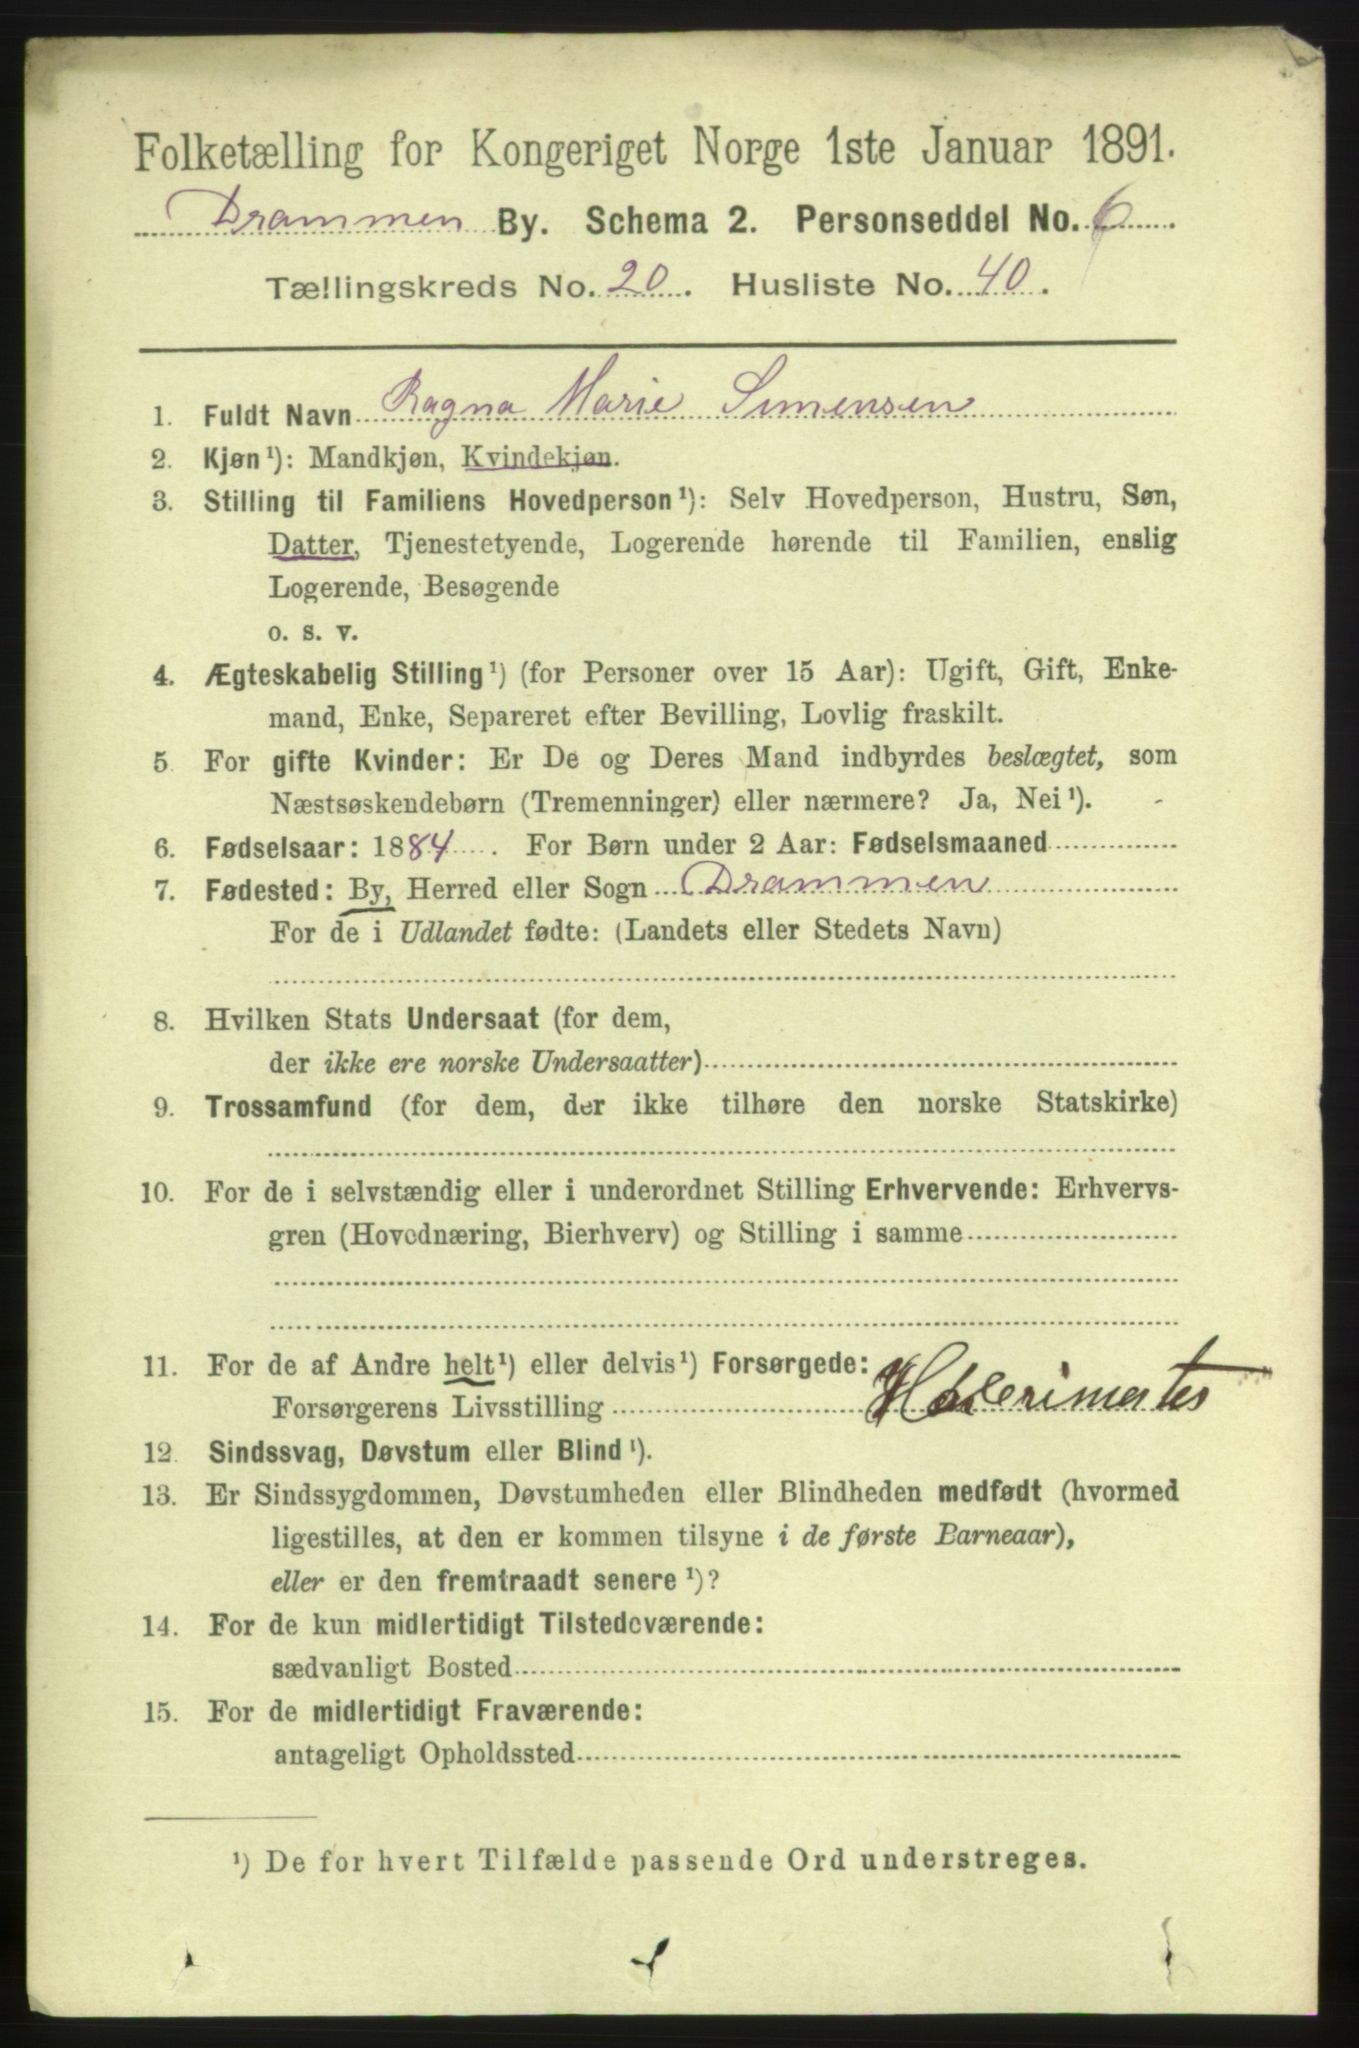 Folketælling for Kongeriget Norge 1ste Januar 1891.
Drammen By. Schema 2. Personseddel No. 6.
Tællingskreds No. 20. Husliste No. 40.
1. Fuldt Navn Ragna Marie Simensen
2. Kjøn¹): Mandkjøn, Kvindekjøn.
3. Stilling til Familiens Hovedperson¹): Selv Hovedperson, Hustru, Søn,
Datter, Tjenestetyende, Logerende hørende til Familien, enslig
Logerende, Besøgende
o. s. v.
4. Ægteskabelig Stilling¹) (for Personer over 15 Aar): Ugift, Gift, Enke-
mand, Enke, Separeret efter Bevilling, Lovlig fraskilt.
5 For gifte Kvinder: Er De og Deres Mand indbyrdes beslægtet, som
Næstsøskendebørn (Tremenninger) eller nærmere? Ja, Nei¹).
6. Fødselsaar: 1884. For Børn under 2 Aar: Fødselsmaaned
7. Fødested: By, Herred eller Sogn Drammen
For de i Udlandet fødte: (Landets eller Stedets Navn)
8. Hvilken Stats Undersaat (for dem,
der ikke ere norske Undersaatter)
9. Trossamfund (for dem, der ikke tilhøre den norske Statskirke)
10. For de i selvstændig eller i underordnet Stilling Erhvervende: Erhvervs-
gren (Hovednæring, Bierhverv) og Stilling i samme
11. For de af Andre helt¹) eller delvis¹) Forsørgede:
Forsørgerens Livsstilling
12. Sindssvag, Døvstum eller Blind¹).
13. Er Sindssygdommen, Døvstumheden eller Blindheden medfødt (hvormed
ligestilles, at den er kommen tilsyne i de første Barneaar),
eller er den fremtraadt senere¹)?
14. For de kun midlertidigt Tilstedeværende:
sædvanligt Bosted
15. For de midlertidigt Fraværende:
antageligt Opholdssted
¹) De for hvert Tilfælde passende Ord understreges.